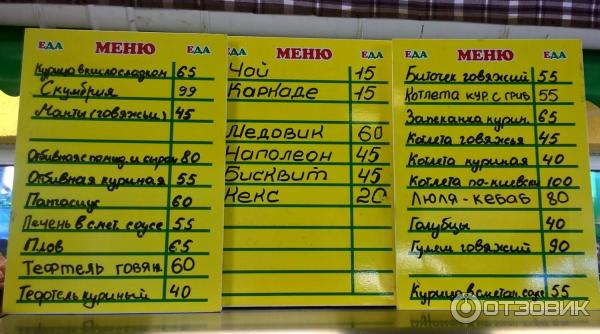 ЕДА МЕНЮ ЕДА
Курица в кислосладком 65
Скумбрия 99
Манты (говяжьи) 45
Отбивная с помид. и сыром 80
Отбивная куриная 55
Пангасиус 60
Печень в смет. соусе 55
Плов 65
Тефтель говяж. 60
Тефтель куриный 40
ЕДА МЕНЮ ЕДА
Чай 15
Каркаде 15
Медовик 60
Наполеон 45
Бисквит 45
Кекс 20
ЕДА МЕНЮ ЕДА
Биточек говяжий 55
Котлета кур. с гриб 55
Запеканка курин. 65
Котлета говяжья 45
Котлета куриная 40
Котлета по-киевски 100
Люля-кебаб 80
Голубцы 40
Гуляш говяжий 90
Курица в сметан. соусе 55
ОТЗОВИК